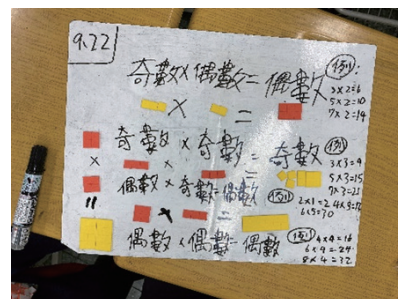 9.22
奇數×偶數=偶數
例:
3×2=6
5×2=10
7×2=14
× =
奇數×奇數=奇數
例
3×3=9
5×3=15
7×3=21
× × =
偶數×奇數=偶數
例 2×1=2 4×3=12
6×5=30
= × =
偶數×偶數=偶數
例 4×4=16
6×4=24
8×4=32